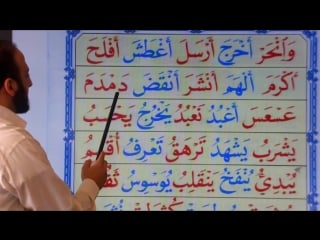 وَانْحَرْ أَخْرَجَ أَرْسَلَ أَغْطَشَ أَفْلَحَ
أَكْرَمَ أَلْهَمَ أَنْشَرَ أَنْقَضَ دَمْدَمَ
عَسْعَسَ أَعْبُدُ نَعْبُدُ يَخْرُجُ يَحْسَبُ
يَشْرَبُ يَشْهَدُ تَرْهَقُ تَعْرِفُ أُقْسِمُ
يُبْدِئُ يُنْفَخُ يَنْقَلِبُ يُوَسْوِسُ